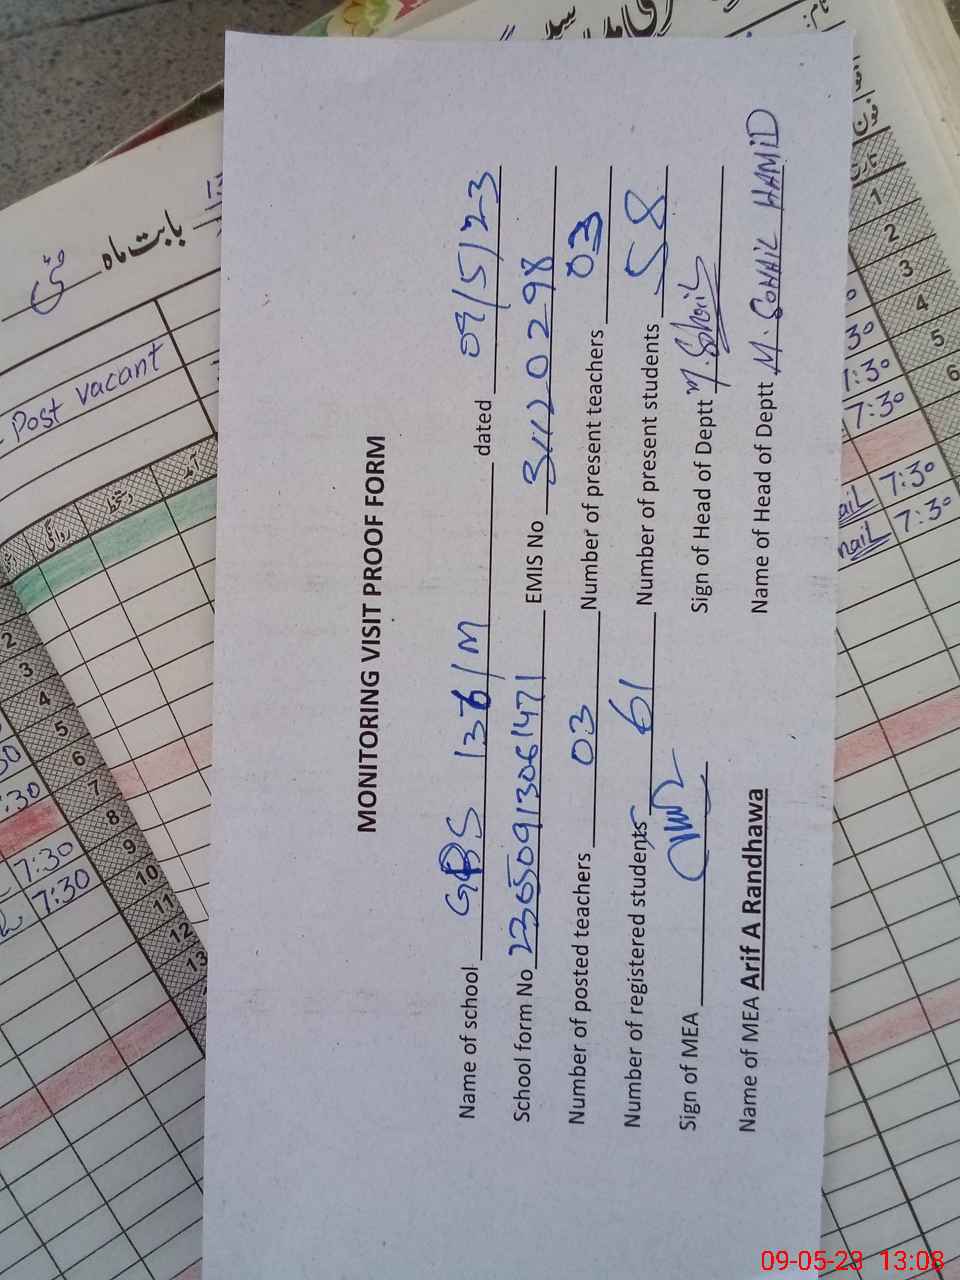 MONITORING VISIT PROOF FORM
Name of school GPS 136/M dated 09/5/23
School form No 23650913061471 EMIS No 31120298
Number of posted teachers 03 Number of present teachers 03
Number of registered students 61 Number of present students 58
Sign of MEA Sign of Head of Deptt M. Sohail
Name of MEA Arif A Randhawa Name of Head of Deptt M. SOHAIL HAMID
بابت ماہ مئی
Post vacant
آمد
دستخط
روانگی
2
3
4
5
6
7
8
9
10
11
12
13
:30
7:30
7:30
نام:
فون
تاریخ
1
2
3
4
5
6
7:30
7:30
7:30
7:30
09-05-23 13:08